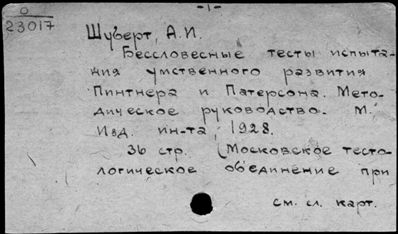 -1-
0
23017
Шуберт, А.И.
Бессловесные тесты испыта-
ния умственного развития
Пинтнера и Патерсона. Мето-
дическое руководство. М.
Изд. ин-та, 1928.
36 стр. (Московское тесто-
логическое об'единение при
см. сл. карт.